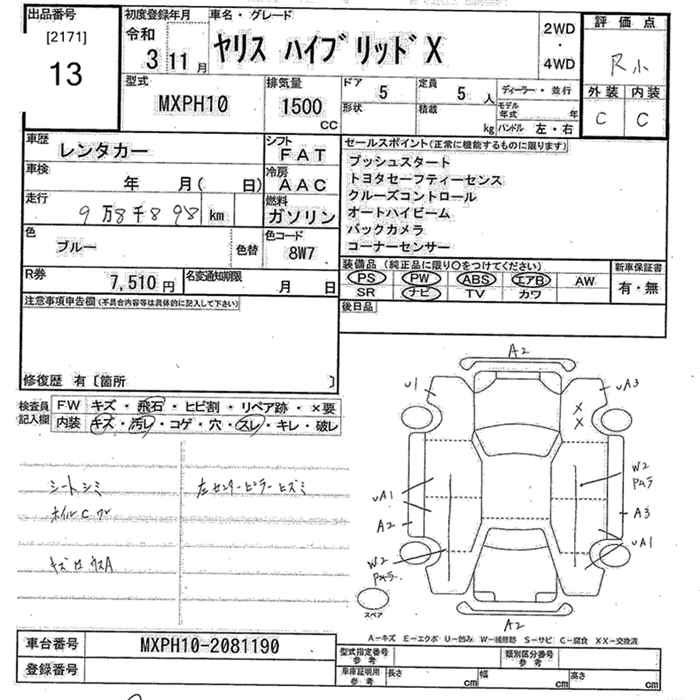 出品番号
[2171]
13
初度登録年月
令和
3 11 月
車名・グレード
ヤリス ハイブリッドX
2WD
・
4WD
評価点
R小
外装 内装
C C
型式
MXPH10
排気量
1500
CC
ドア 5
形状
定員 5 人
積載 kg
ディーラー・並行
モデル年式 年
ハンドル 左・右
車歴
レンタカー
シフト
FAT
車検
年 月( 日)
冷房
AAC
走行
9万8千898 km
燃料
ガソリン
色
ブルー
色替
色コード
8W7
R券
7,510 円
名変通知期限
月 日
セールスポイント(正常に機能するものに限ります)
プッシュスタート
トヨタセーフティーセンス
クルーズコントロール
オートハイビーム
バックカメラ
コーナーセンサー
装備品(純正品に限り○をつけてください)
PS PW ABS エアB AW
SR ナビ TV カワ
新車保証書
有・無
注意事項申告欄(不具合内容等は具体的に記入して下さい)
後日品
修復歴 有〔箇所 〕
検査員
記入欄
FW キズ・飛石・ヒビ割・リペア跡・×要
内装 キズ・汚レ・コゲ・穴・スレ・キレ・破レ
シートシミ
左センターピラーヒズミ
ホイルC
A2
U1
UA3
X
X
W2
UA1
A2
A3
UA1
W2
スペア
A2
A-キズ E-エクボ U-凹み W-補修跡 S-サビ C-腐食 XX-交換済
車台番号
MXPH10-2081190
登録番号
型式指定番号
参考
類別区分番号
参考
車庫証明用
参考
長さ cm
幅 cm
高さ cm